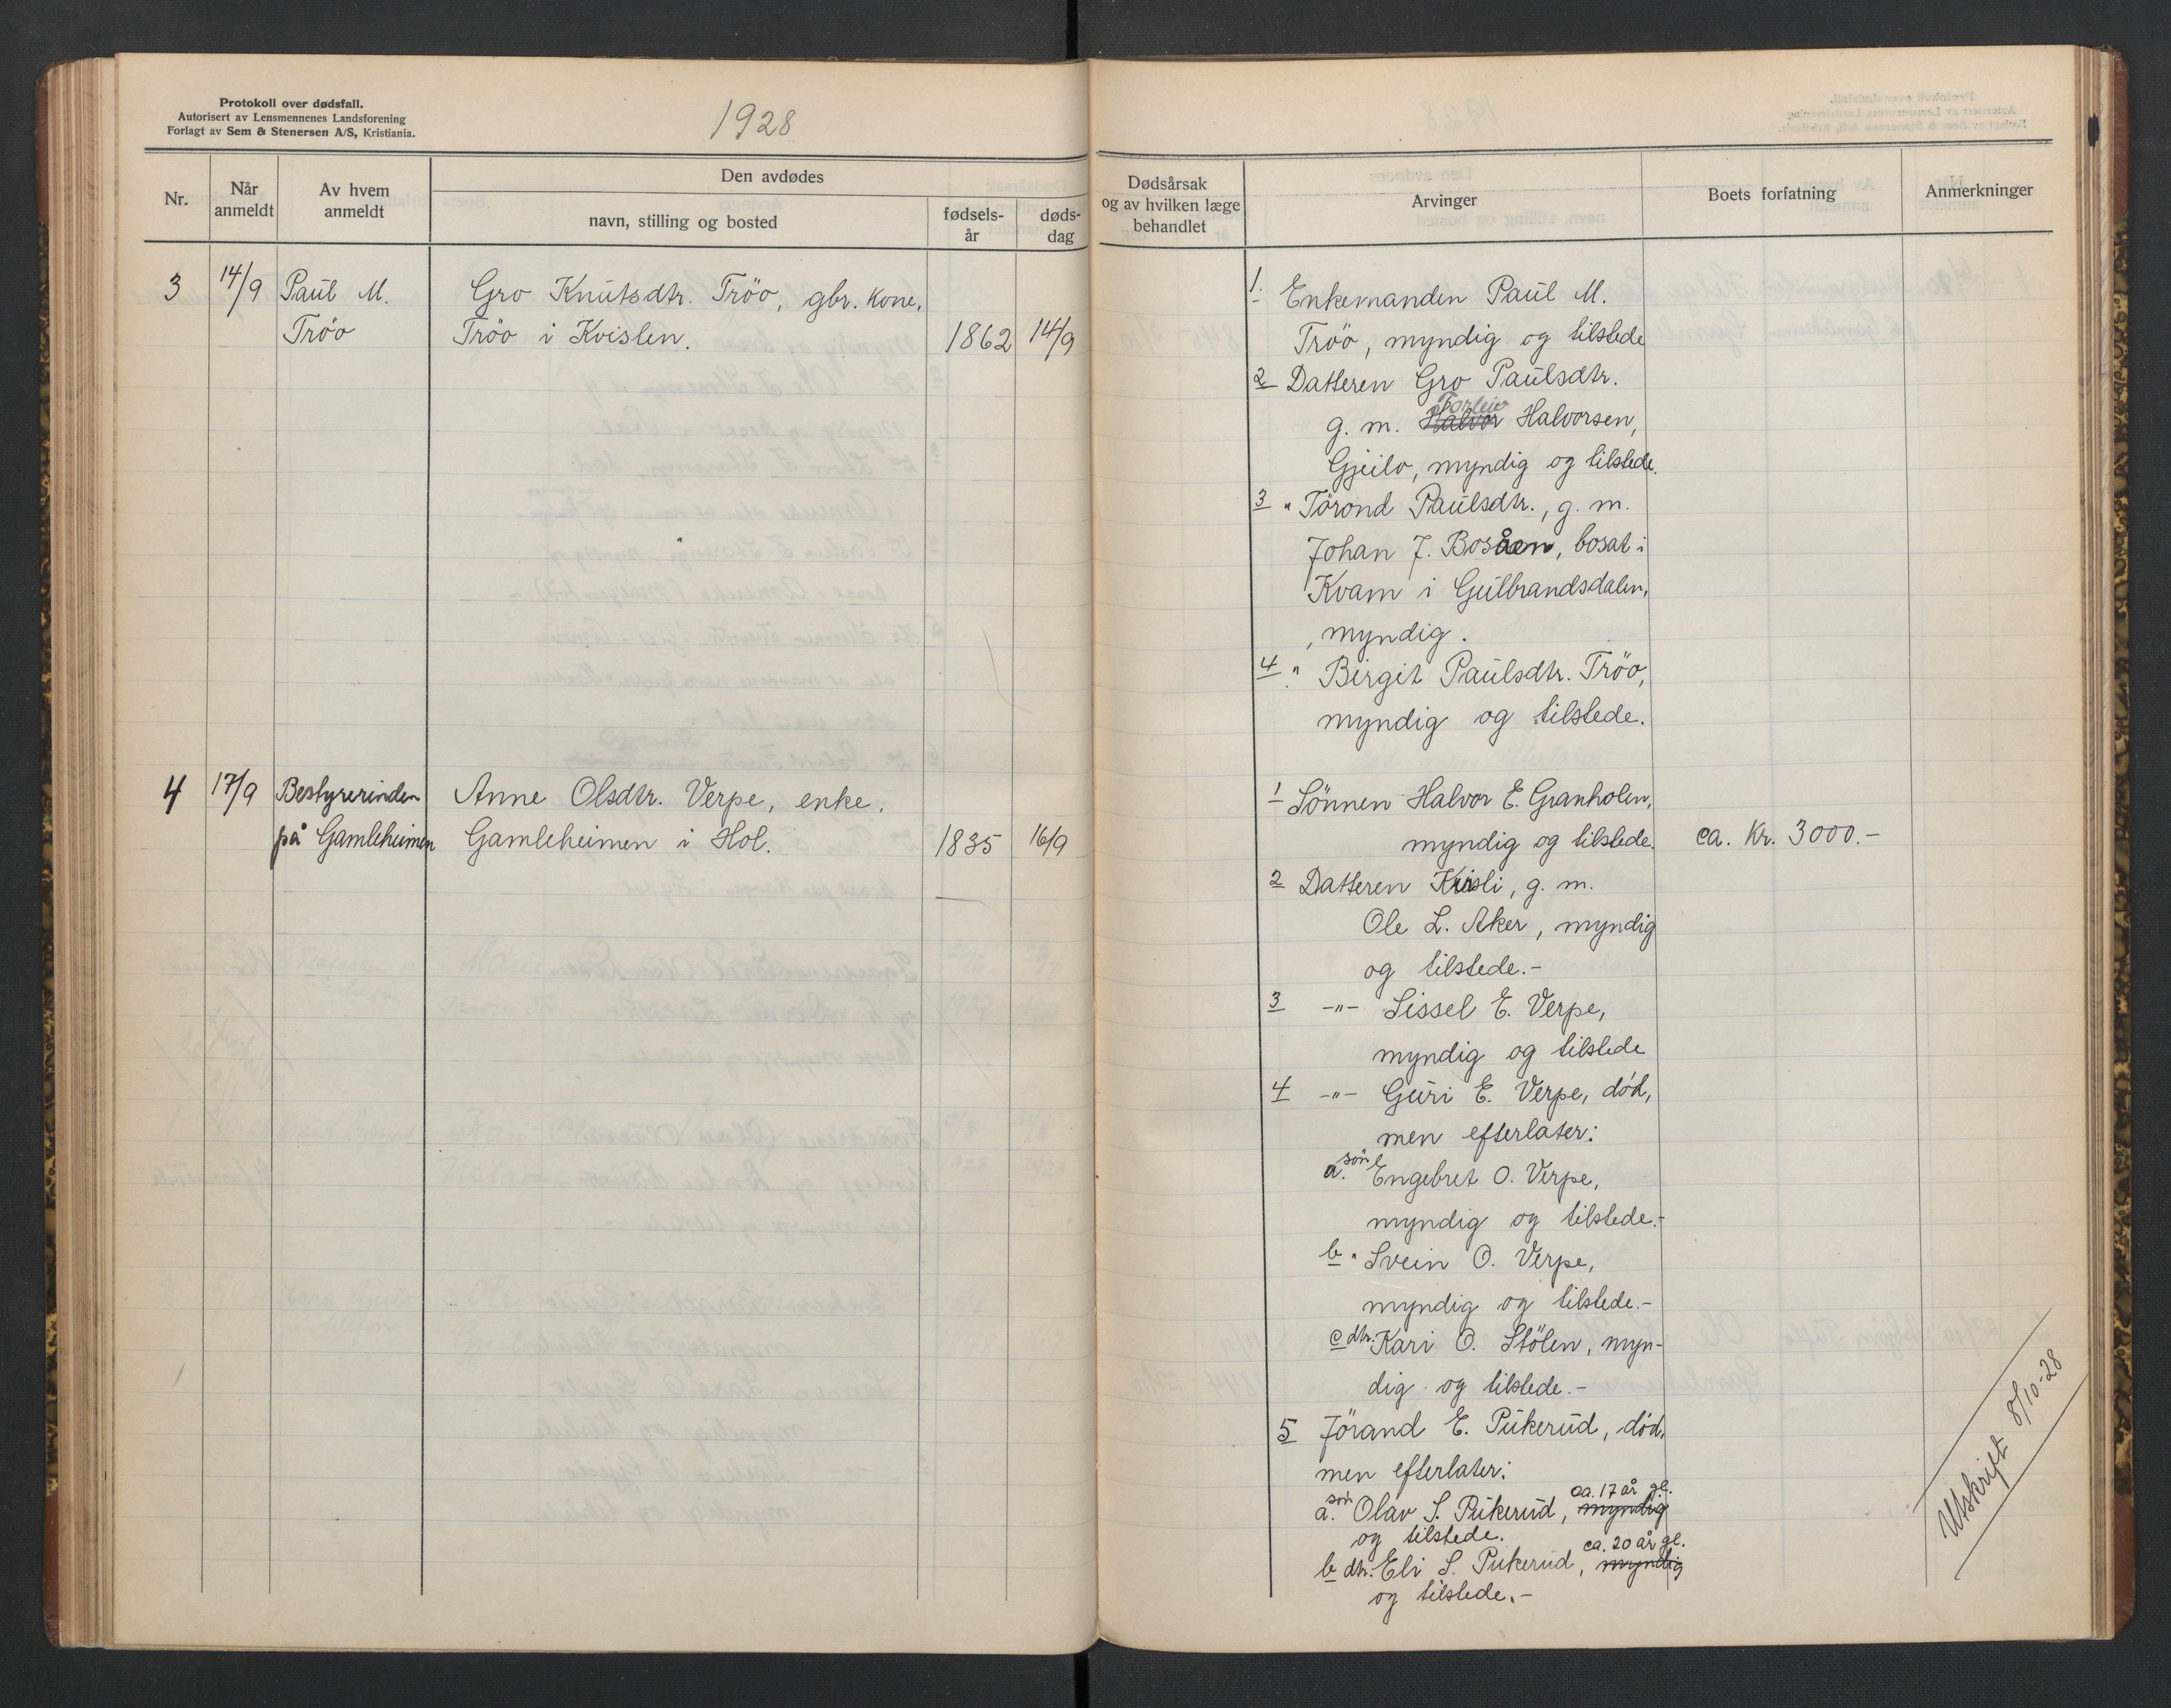 Protokoll over dødsfall.
Autorisert av Lensmennenes Landsforening
Forlagt av Sem & Stenersen A/S, Kristiania.
1928
Nr.
Når anmeldt
Av hvem anmeldt
Den avdødes
navn, stilling og bosted
fødsels-år
døds-dag
Dødsårsak
og av hvilken læge
behandlet
Arvinger
Boets forfatning
Anmerkninger
3 14/9 Paul M. Gro Knutsdtr. Tröo, gbr. kone,
Tröo Tröo i Kvislen. 1862 14/9
1. Enkemanden Paul M.
Tröo, myndig og tilstede
2 Datteren Gro Paulsdtr.
Torleiv
g. m. Halvor Halvorsen,
Gjeilo, myndig og tilstede.
3 " Törond Paulsdtr., g. m.
Johan J. Bosåen, bosat i
Kvam i Gulbrandsdalen,
, myndig.
4 " Birgit Paulsdtr. Tröo,
myndig og tilstede.
4 17/9 Bestyrerinden Anne Olsdtr. Verpe, enke.
på Gamleheimen Gamleheimen i Hol. 1835 16/9
1 Sönnen Halvor E. Granholen,
myndig og tilstede. ca. Kr. 3000.-
2 Datteren Kirsti, g. m.
Ole L. Aker, myndig
og tilstede.-
3 -"- Sissel E. Verpe,
myndig og tilstede
4 -"- Guri E. Verpe, död,
men efterlater:
a. sön Engebret O. Verpe,
myndig og tilstede.-
b " Svein O. Verpe,
myndig og tilstede.-
c dtr. Kari O. Stölen, myn-
dig og tilstede.-
5 Jörand E. Pukerud, död,
men efterlater:
ca. 17 år gl.
a. sön Olav S. Pukerud, myndig
og tilstede.
ca. 20 år gl.
b dtr. Eli S. Pukerud, myndig
og tilstede.-
Utskrift 8/10-28